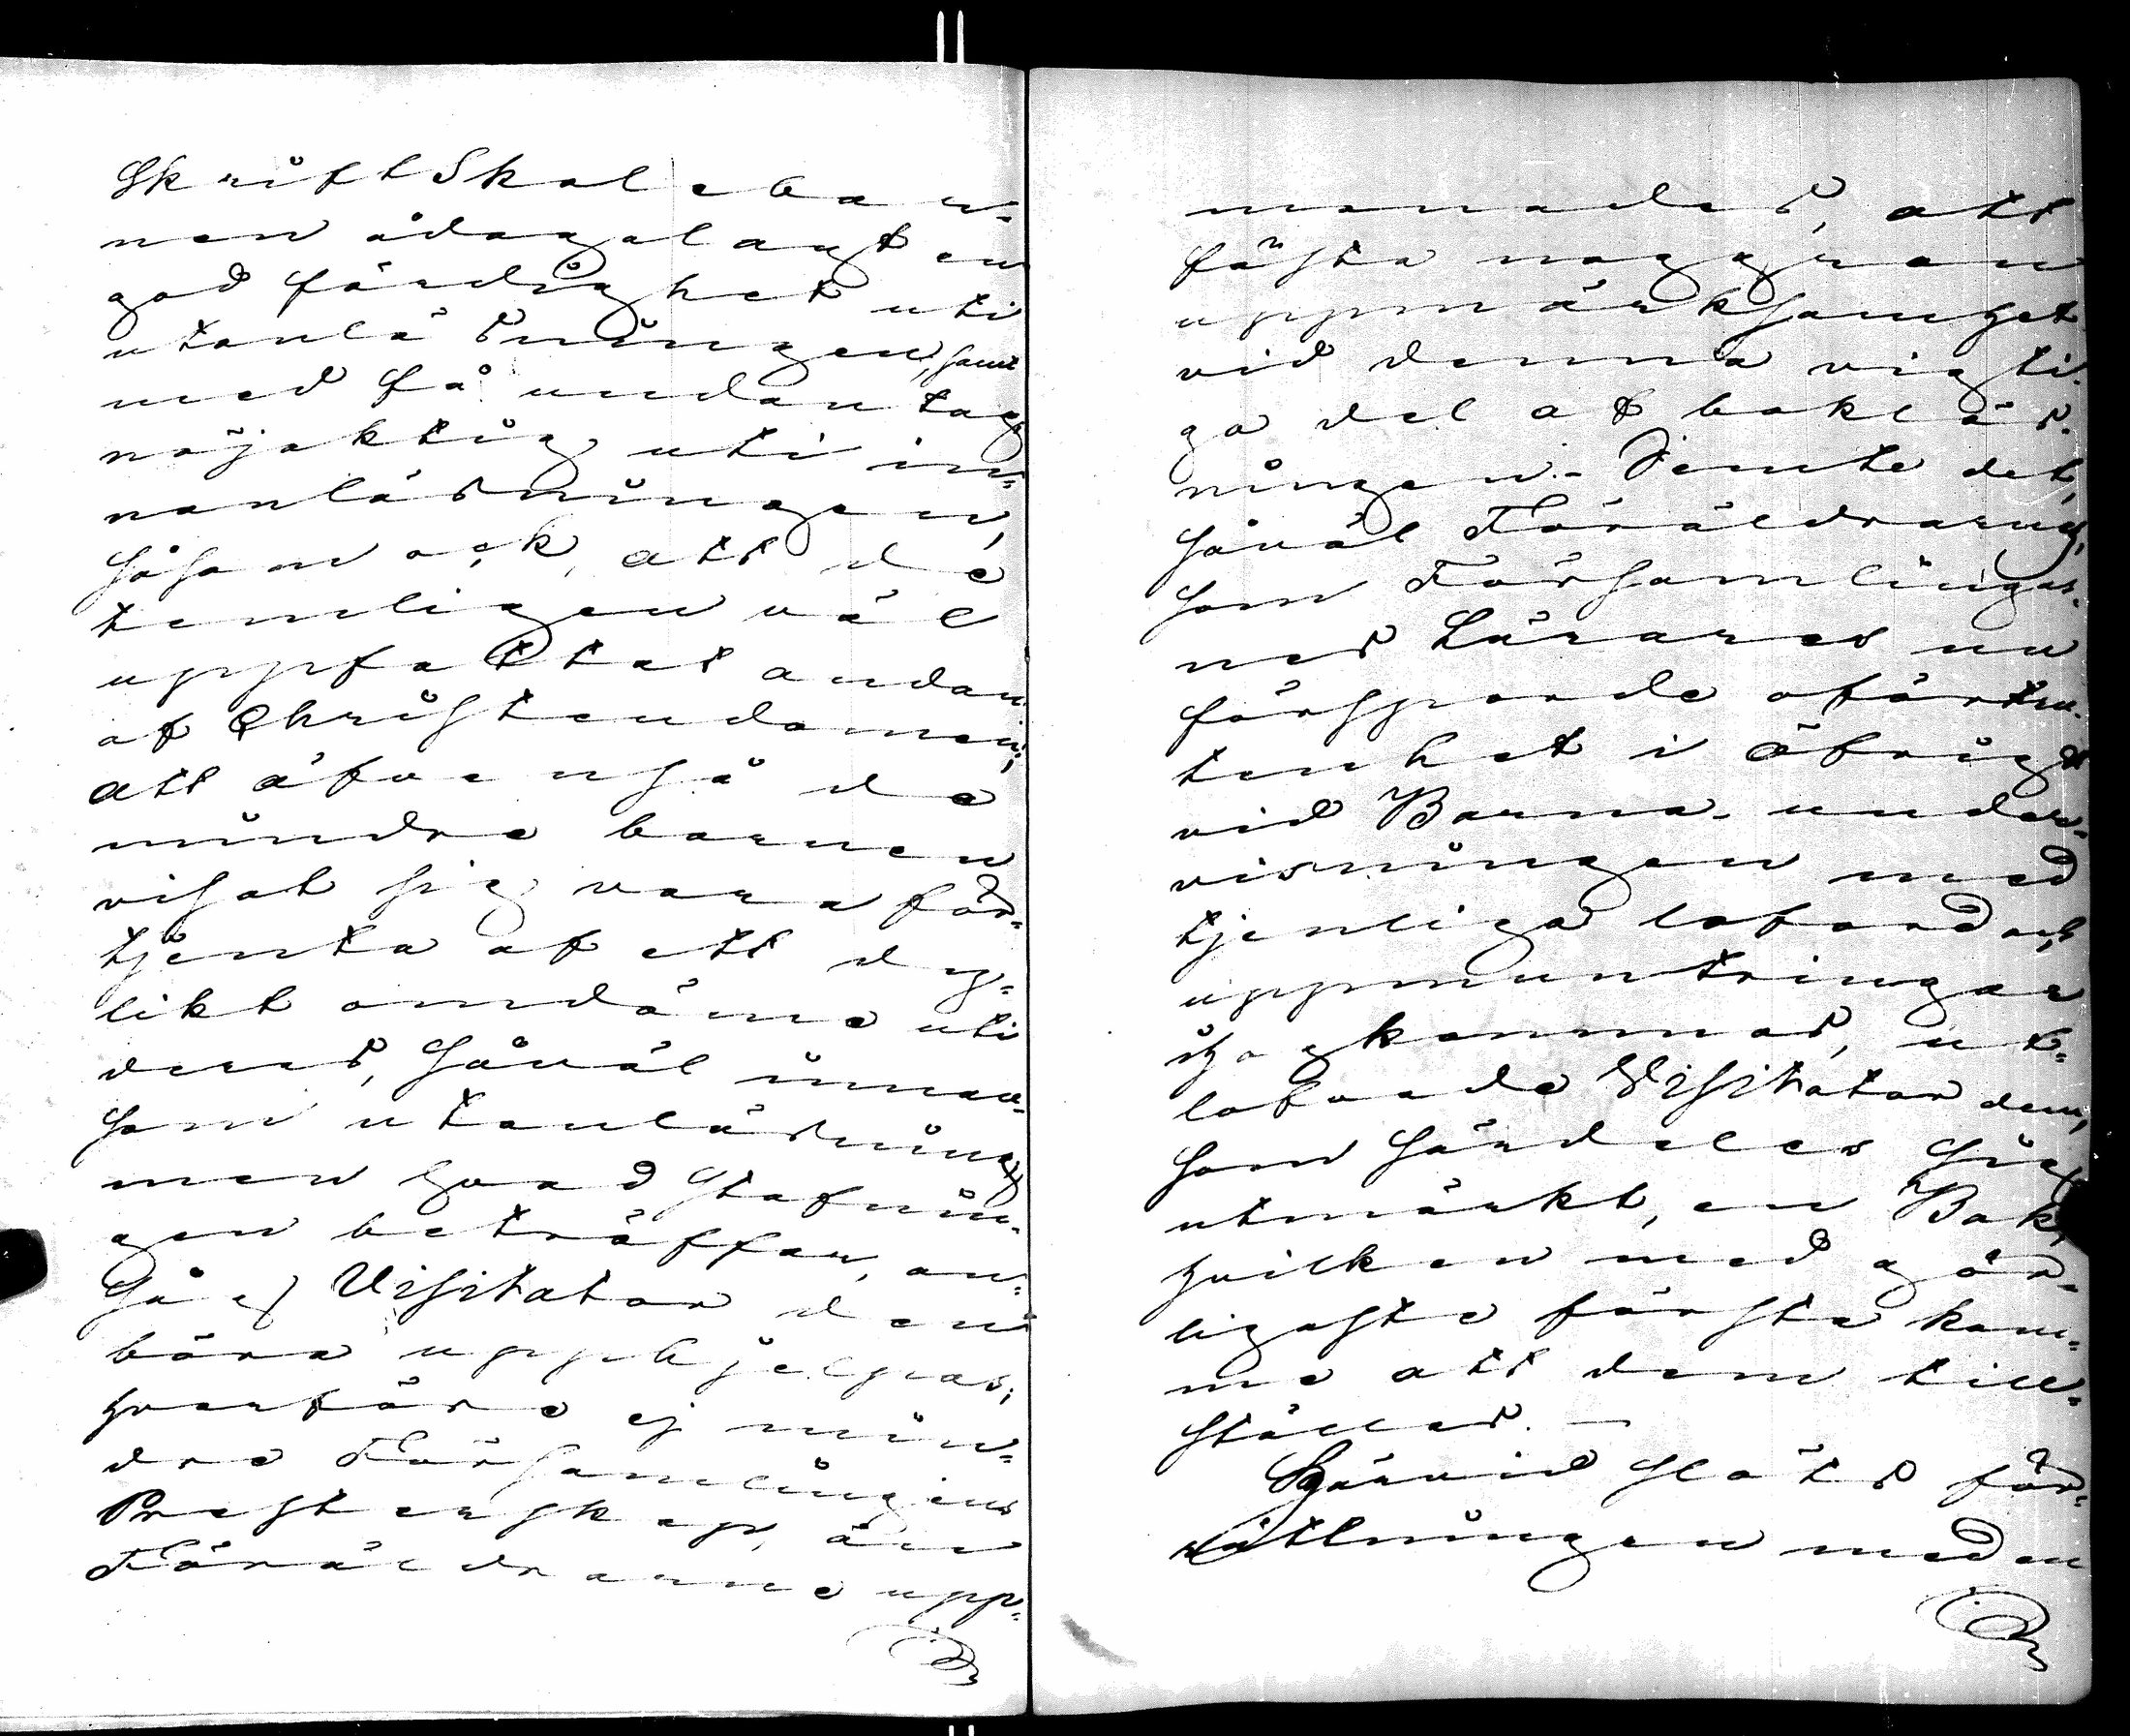 SkriftSkolebar-
nen ådagalagt en
god färdighet uti
utanläsningen, samt
med få undantag
nöjaktig uti in-
nanläsningen,
såsom ock, att de
temligen väl
uppfattat andan
af Christendomen;
att äfvenså de
mindre barnen
visat sig vara för-
tjenta af ett dy-
likt omdöme uti
deras, såväl innan-
som utanläsning
men hvad Stafnin-
gen beträffar, an-
såg Visitator den
böra upphjelpas;
hvarföre ej min-
dre Församlingens
Presterskap, än
Föräldrarne upp-
manades, att
fästa noggran
uppmärksamhet
vid denna vigti-
ga del af boklär-
ningen. - Jemte det,
såväl Föräldrarnas,
som Församlingar-
nes Lärares nu
försporde oförtru-
tenhet i öfrigt
vid Barna-under-
visningen med
tjenliga loford och
uppmuntringar
ihogkommos, ut-
lofvade Visitator dem,
som särdeles sig
utmärkt, en Bok,
hvilken med gör-
ligaste första kom-
me att dem till-
ställas. —
Härvid slöts för-
rättningen med en